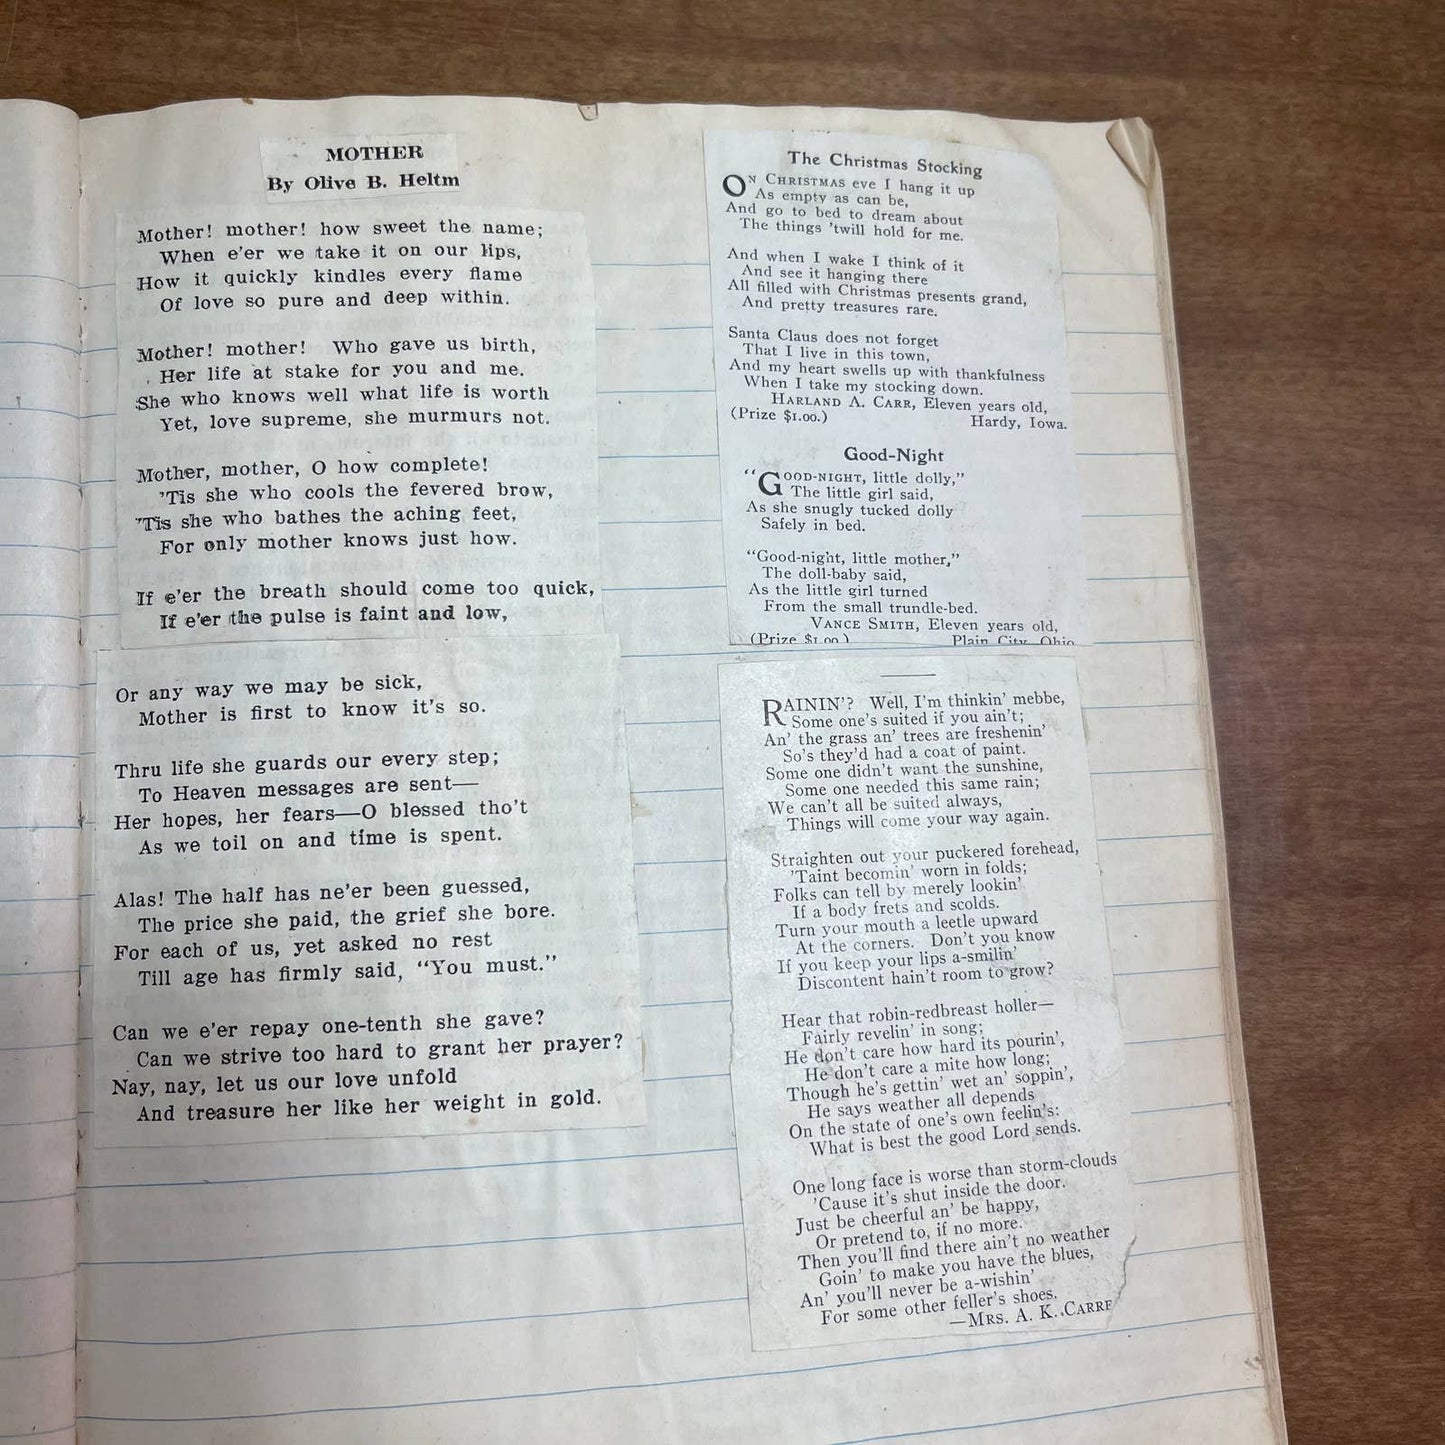 MOTHER
By Olive B. Heltm
Mother! mother! how sweet the name;
When e'er we take it on our lips,
How it quickly kindles every flame
Of love so pure and deep within.
Mother! mother! Who gave us birth,
Her life at stake for you and me.
She who knows well what life is worth
Yet, love supreme, she murmurs not.
Mother, mother, O how complete!
'Tis she who cools the fevered brow,
'Tis she who bathes the aching feet,
For only mother knows just how.
If e'er the breath should come too quick,
If e'er the pulse is faint and low,
Or any way we may be sick,
Mother is first to know it's so.
Thru life she guards our every step;
To Heaven messages are sent—
Her hopes, her fears—O blessed tho't
As we toil on and time is spent.
Alas! The half has ne'er been guessed,
The price she paid, the grief she bore.
For each of us, yet asked no rest
Till age has firmly said, "You must."
Can we e'er repay one-tenth she gave?
Can we strive too hard to grant her prayer?
Nay, nay, let us our love unfold
And treasure her like her weight in gold.
The Christmas Stocking
ON CHRISTMAS eve I hang it up
As empty as can be,
And go to bed to dream about
The things 'twill hold for me.
And when I wake I think of it
And see it hanging there
All filled with Christmas presents grand,
And pretty treasures rare.
Santa Claus does not forget
That I live in this town,
And my heart swells up with thankfulness
When I take my stocking down.
HARLAND A. CARR, Eleven years old,
(Prize $1.00.) Hardy, Iowa.
Good-Night
"GOOD-NIGHT, little dolly,"
The little girl said,
As she snugly tucked dolly
Safely in bed.
"Good-night, little mother,"
The doll-baby said,
As the little girl turned
From the small trundle-bed.
VANCE SMITH, Eleven years old,
(Prize $1.00.) Plain City, Ohio
RAININ'? Well, I'm thinkin' mebbe,
Some one's suited if you ain't;
An' the grass an' trees are freshenin'
So's they'd had a coat of paint.
Some one didn't want the sunshine,
Some one needed this same rain;
We can't all be suited always,
Things will come your way again.
Straighten out your puckered forehead,
'Taint becomin' worn in folds;
Folks can tell by merely lookin'
If a body frets and scolds.
Turn your mouth a leetle upward
At the corners. Don't you know
If you keep your lips a-smilin'
Discontent hain't room to grow?
Hear that robin-redbreast holler—
Fairly revelin' in song;
He don't care how hard its pourin',
He don't care a mite how long;
Though he's gettin' wet an' soppin',
He says weather all depends
On the state of one's own feelin's:
What is best the good Lord sends.
One long face is worse than storm-clouds
'Cause it's shut inside the door.
Just be cheerful an' be happy,
Or pretend to, if no more.
Then you'll find there ain't no weather
Goin' to make you have the blues,
An' you'll never be a-wishin'
For some other feller's shoes.
—MRS. A. K. CARRF